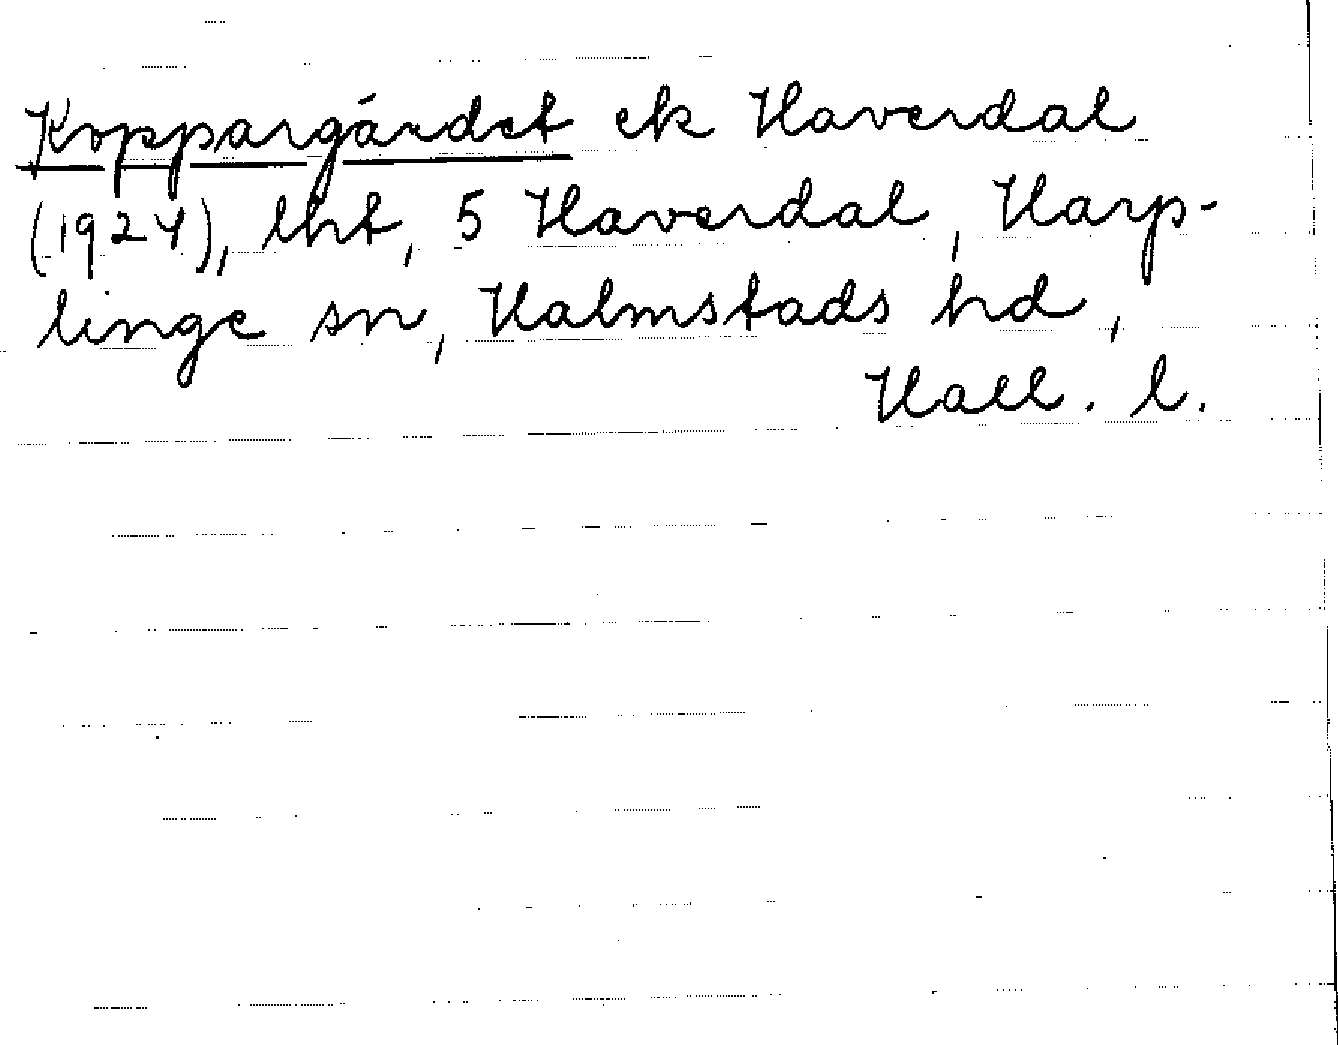 Koppargárdet ek Haverdal
(1924), lht, 5 Haverdal, Harp-
linge sn, Halmstads hd,
Hall. l.